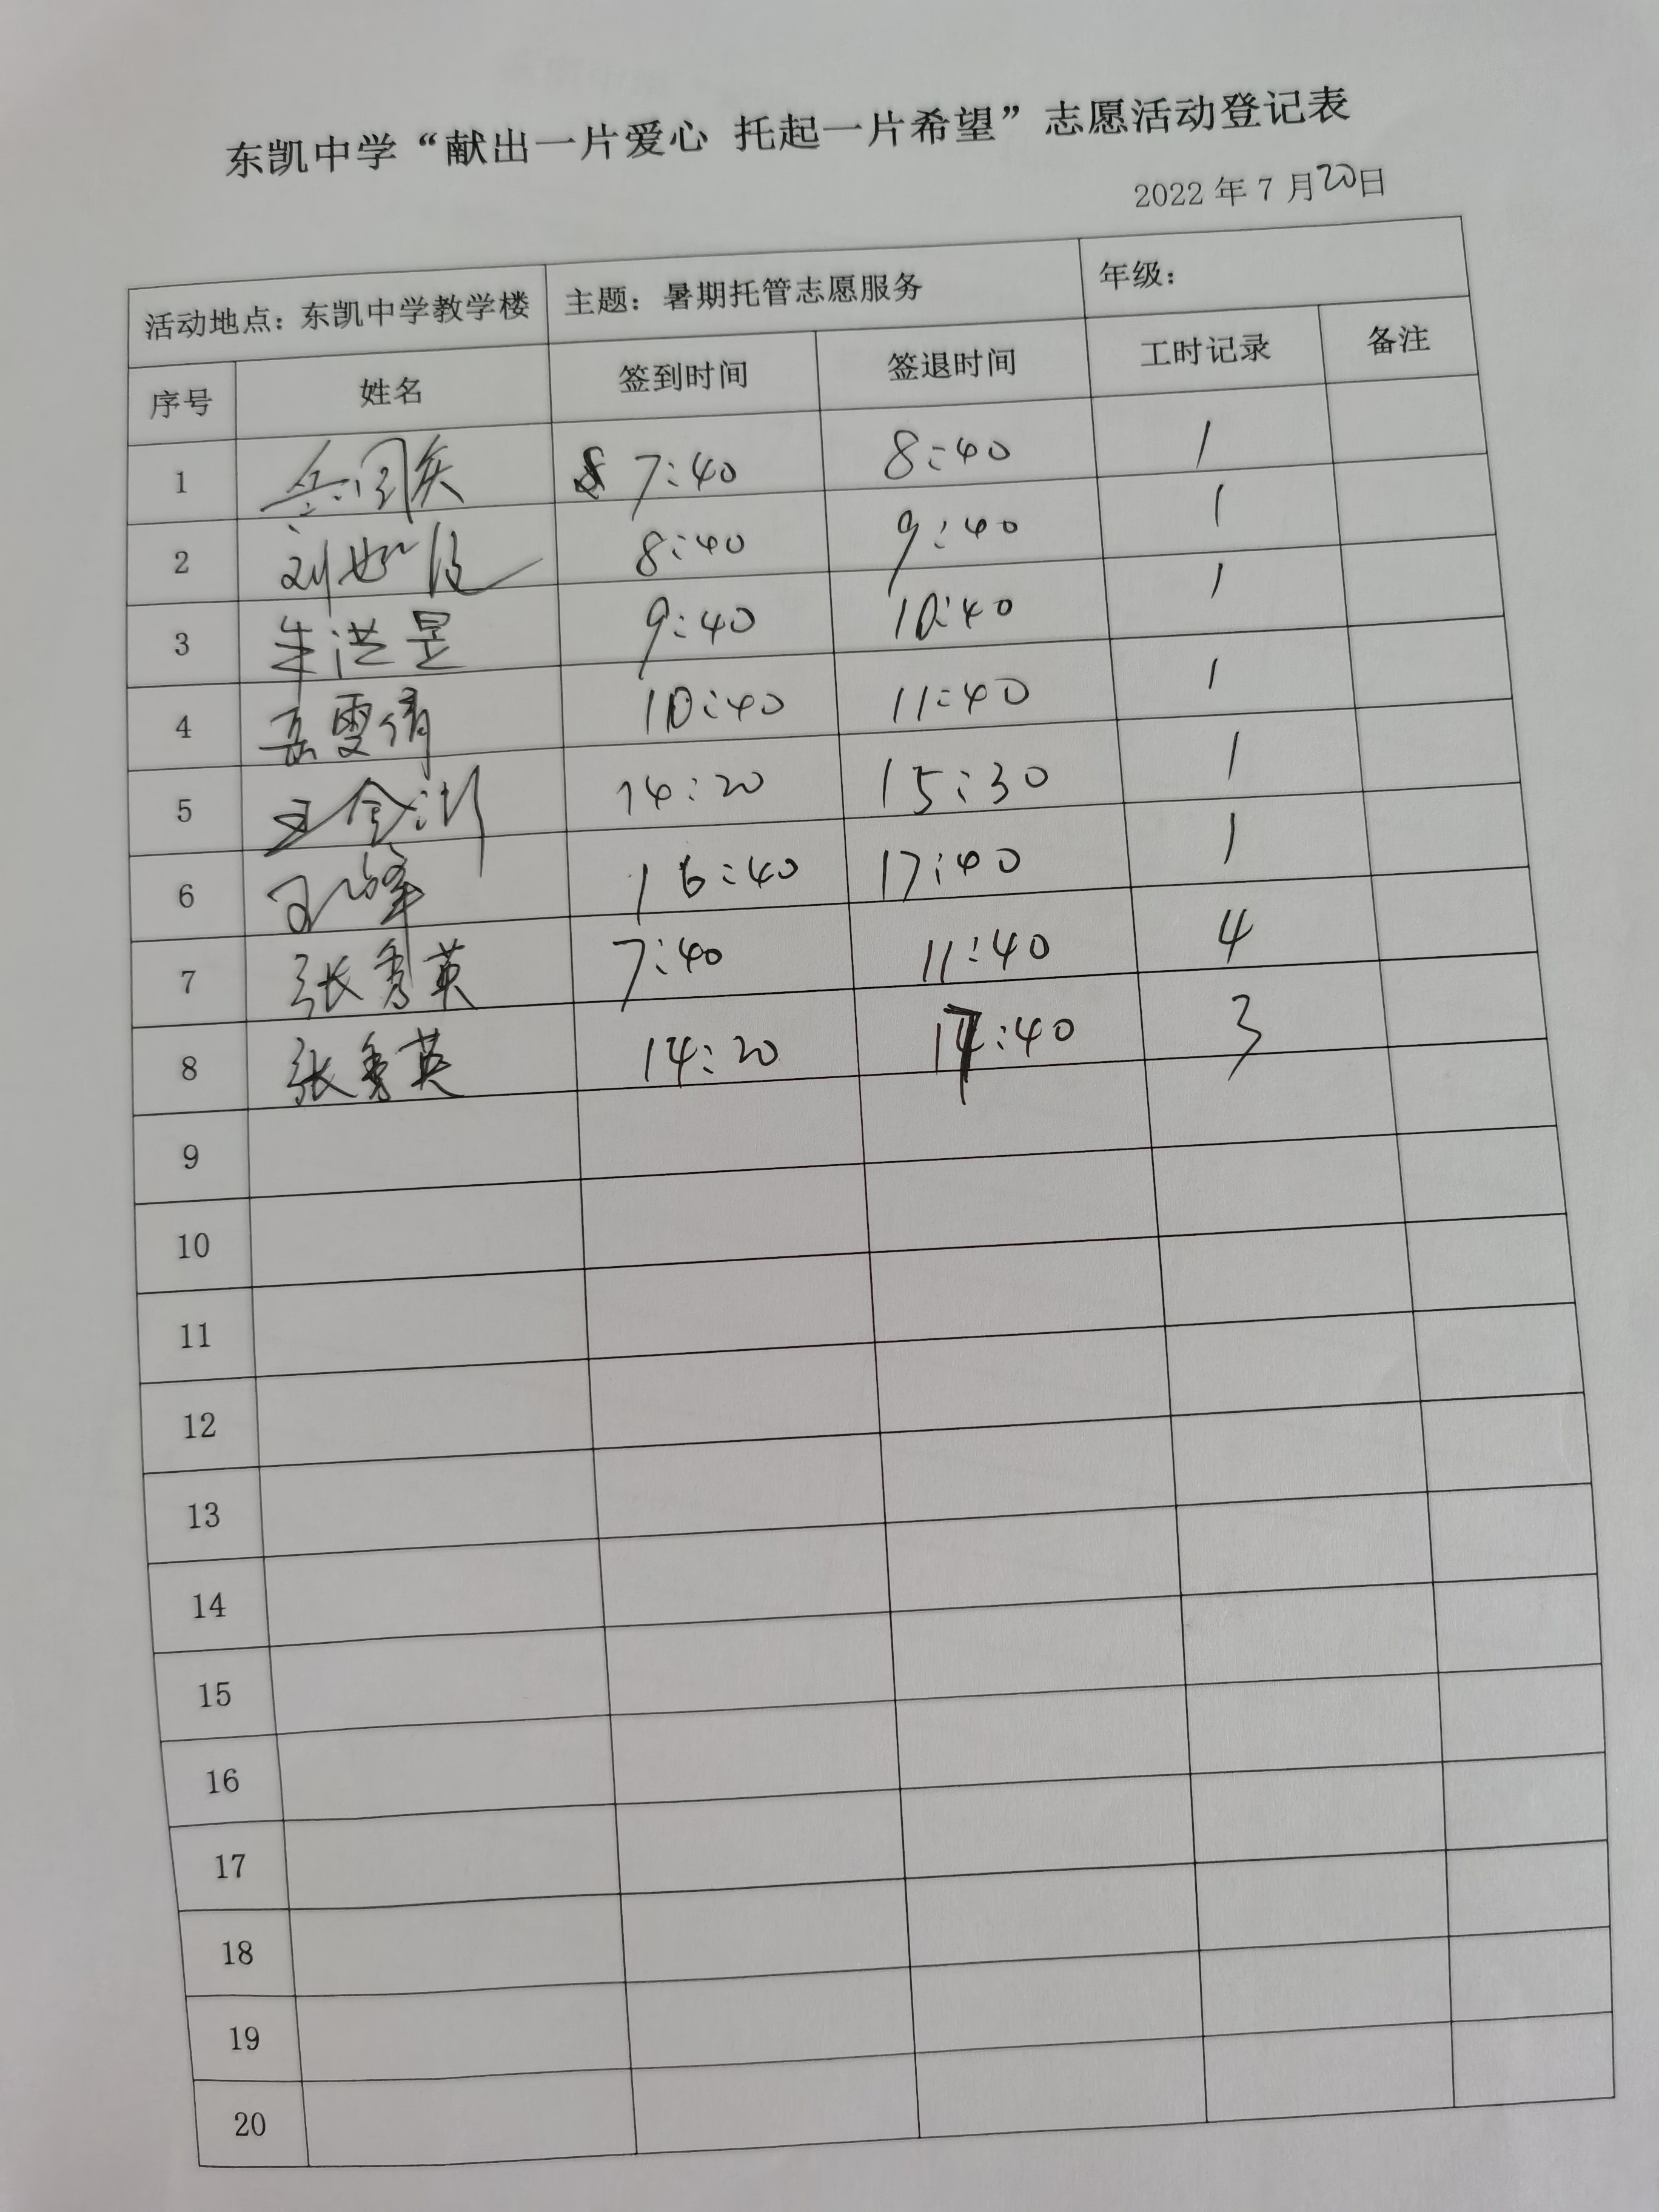 东凯中学“献出一片爱心 托起一片希望”志愿活动登记表
2022 年 7 月20日
活动地点：东凯中学教学楼 主题：暑期托管志愿服务 年级：
序号 姓名 签到时间 签退时间 工时记录 备注
1 7:40 8:40 1
2 刘 8:40 9:40 1
3 朱洪昱 9:40 10:40 1
4 岳雯倩 10:40 11:40 1
5 王 14:20 15:30 1
6 王 16:40 17:40 1
7 张秀英 7:40 11:40 4
8 张秀英 14:20 17:40 3
9
10
11
12
13
14
15
16
17
18
19
20